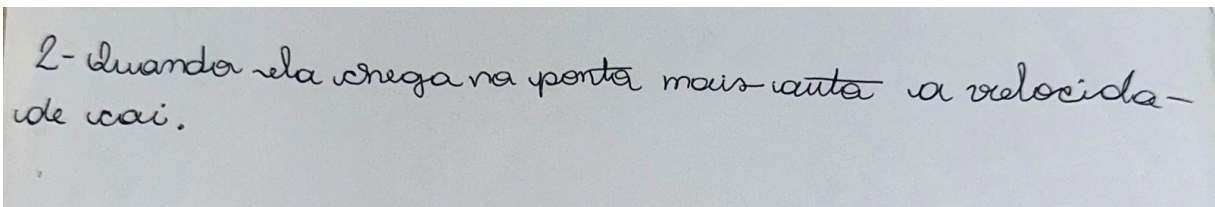 2- Quando ela chega na ponta mais auta a velocida-
de cai.